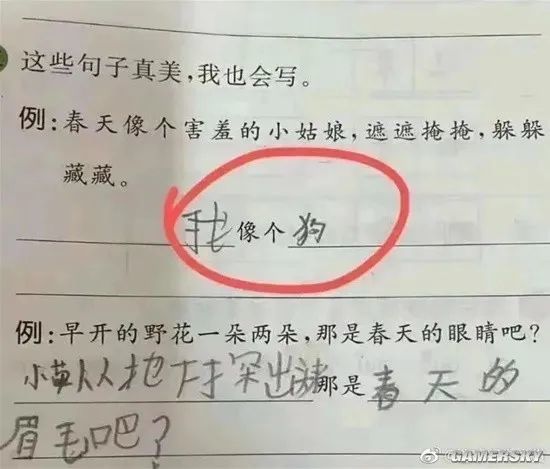 这些句子真美,我也会写。
例:春天像个害羞的小姑娘,遮遮掩掩,躲躲
藏藏。
我像个狗
例:早开的野花一朵两朵,那是春天的眼睛吧?
小草从地下探出头那是春天的
眉毛吧?
@GAMERSKY